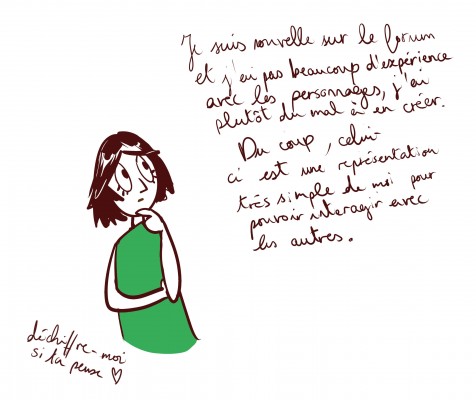 Je suis nouvelle sur le forum
et j'ai pas beaucoup d'expérience
avec les personnages, j'ai
plutôt du mal à en créer.
Du coup, celui-
ci est une représentation
très simple de moi pour
pouvoir interagir avec
les autres.
déchiffre-moi
si tu peux ♡